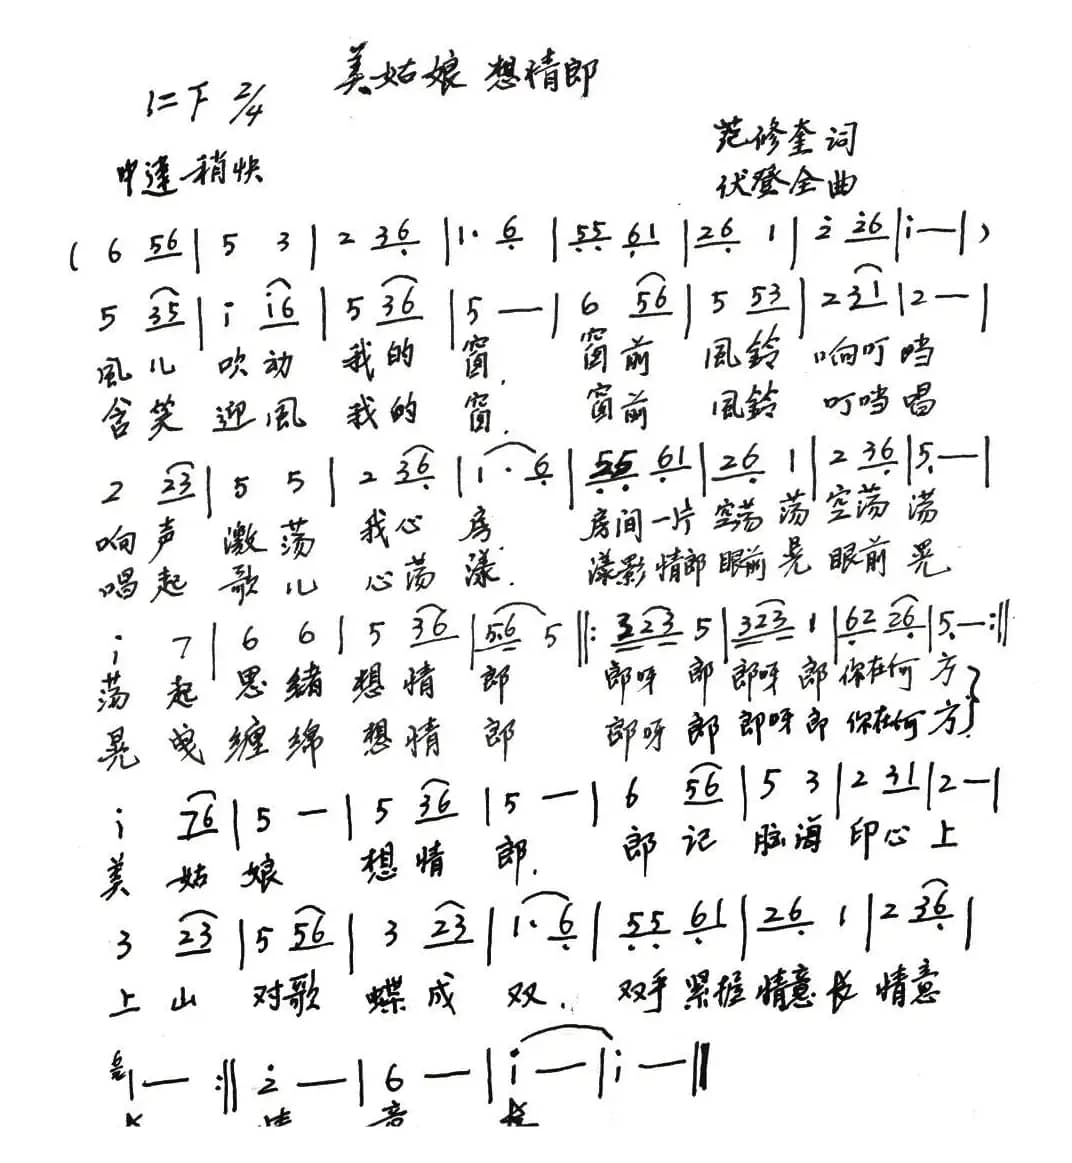 美姑娘 想情郎
1=F 2/4
中速稍快
范修奎 词
伏登全 曲
( 6 56 | 5 3 | 2 36 | 1· 6 | 55 61 | 26 1 | 2 26 | i — | )
5 35 | i i6 | 5 36 | 5 — | 6 56 | 5 53 | 2 31 | 2 — |
風儿 吹动 我的 窗. 窗前 風鈴 响叮 鸣
含笑 迎風 我的 窗. 窗前 風鈴 叮当 唱
2 23 | 5 5 | 2 36 | 1· 6 | 55 61 | 26 1 | 2 36 | 5 — |
响声 激荡 我心 房. 房间一片 空荡 荡 空荡 荡
唱起 歌儿 心荡 漾. 漾影情郎 眼前 晃 眼前 晃
i 7 | 6 6 | 5 36 | 56 5 ‖: 323 5 | 323 1 | 62 26 | 5 — :‖
荡起 思绪 想情 郎 郎呀 郎 郎呀 郎 你在何 方
晃曳 缠绵 想情 郎 郎呀 郎 郎呀 郎 你在何 方
i 76 | 5 — | 5 36 | 5 — | 6 56 | 5 3 | 2 31 | 2 — |
美姑 娘 想情 郎. 郎记 脑海 印心 上
3 23 | 5 56 | 3 23 | 1· 6 | 55 61 | 26 1 | 2 36 |
上山 对歌 蝶成 双. 双手紧握 情意长 情意
1 — :‖ 2 — | 6 — | i — | i — ‖
长 情 意 长